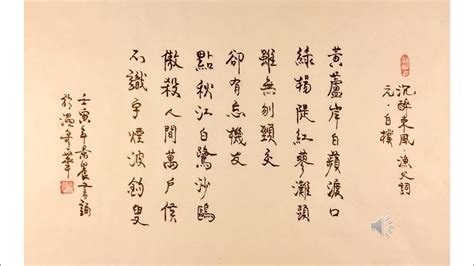 沉醉東風 漁父詞
元·白樸
黃蘆岸白蘋渡口
綠楊隄紅蓼灘頭
雖無刎頸交
卻有忘機友
點秋江白鷺沙鷗
傲殺人間萬戶侯
不識字煙波釣叟
壬寅年
於溫哥華